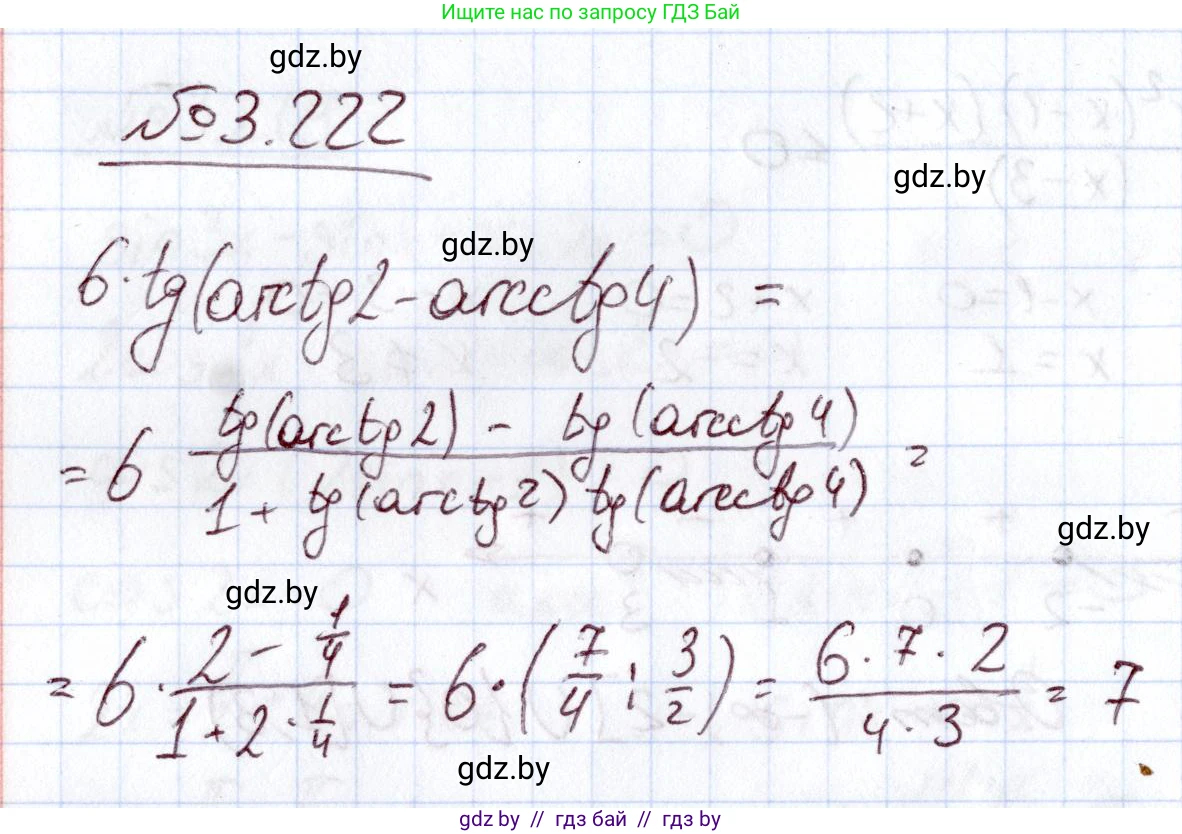 Ищите нас по запросу ГДЗ Бай
gdz.by
№3.222
gdz.by
gdz.by
6·tg(arctg2-arcctg4) =
= 6 (tg(arctg2) - tg(arcctg4)) / (1 + tg(arctg2) tg(arcctg4)) =
gdz.by
gdz.by
= 6 · (2 - 1/4) / (1 + 2 · 1/4) = 6 · (7/4 : 3/2) = (6 · 7 · 2) / (4 · 3) = 7
gdz.by
gdz.by // гдз бай // гдз by